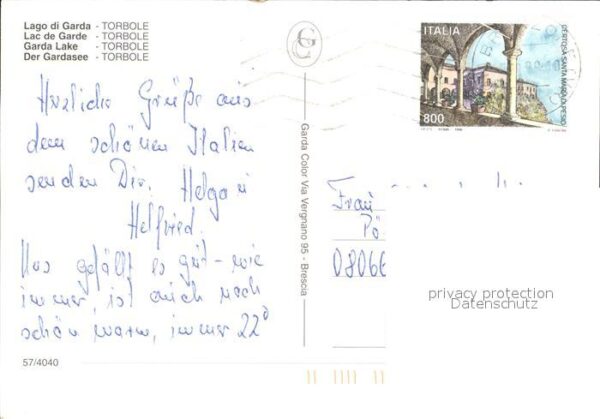 Lago di Garda - TORBOLE
Lac de Garde - TORBOLE
Garda Lake - TORBOLE
Der Gardasee - TORBOLE
Herzliche Grüße aus
dem schönen Italien
senden Dir. Helga u
Helfried.
Uns gefällt es gut - wie
immer, ist auch noch
schön warm, immer 22°
57/4040
Garda Color Via Vergnano 95 - Brescia
ITALIA
CERTOSA SANTA MARIA DI PESIO
800
Frau
Pö
08066
privacy protection
Datenschutz